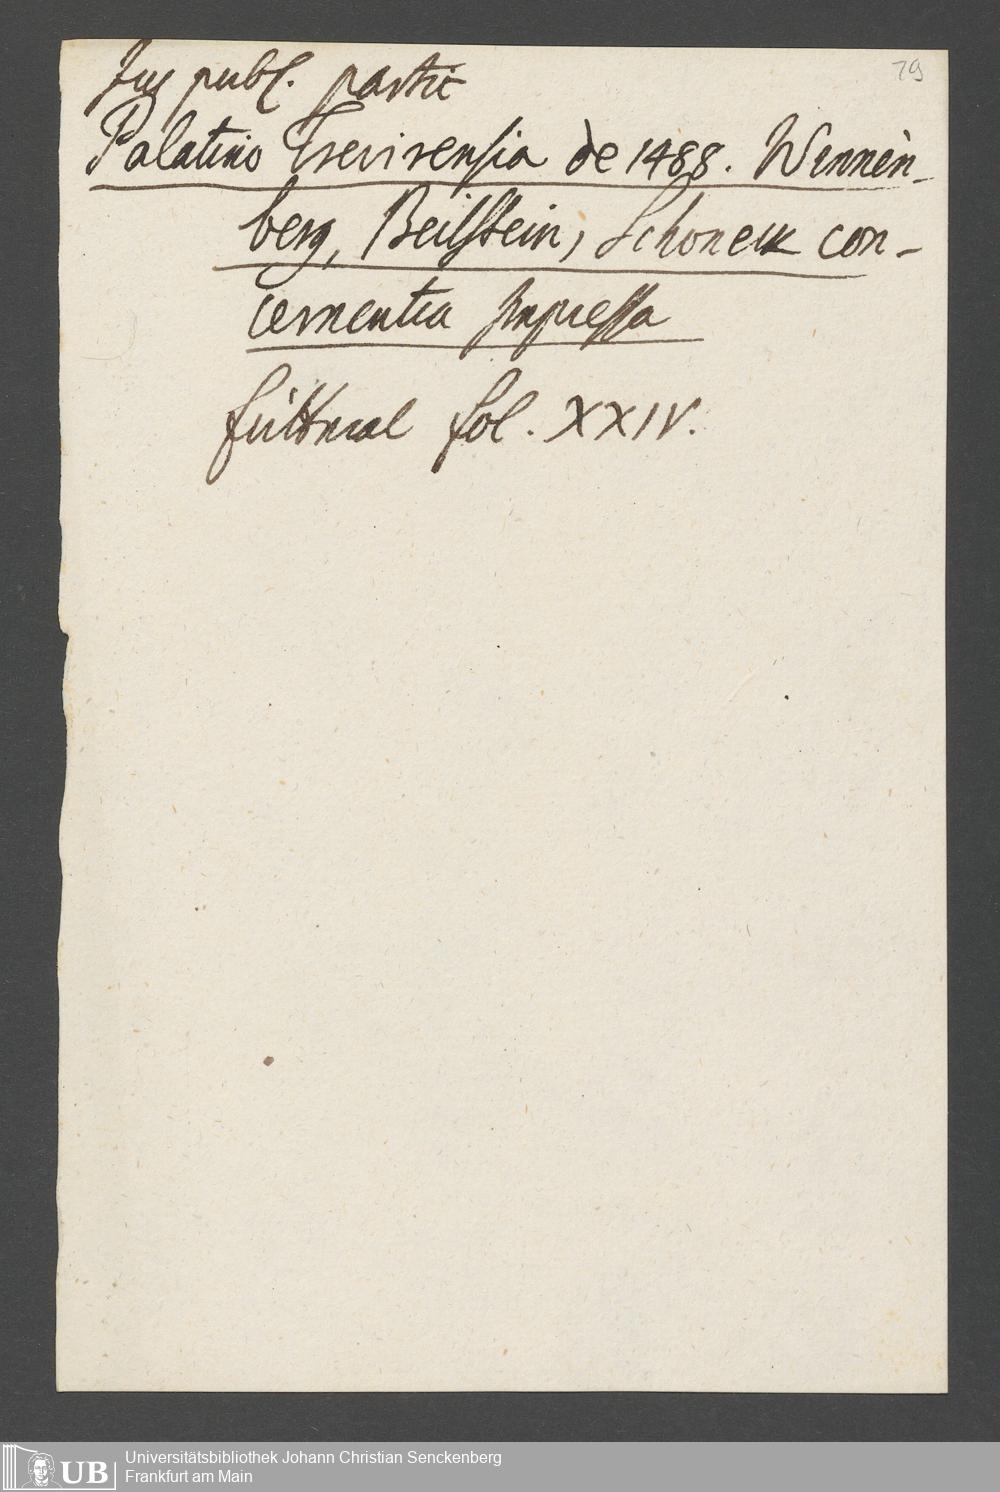 79
Jus publ. partic
Palatino Trevirensia de 1488. Winnen-
berg, Beilstein, Schoneck con-
cernentia Impressa
futteral fol. XXIV.
UB
Universitätsbibliothek Johann Christian Senckenberg
Frankfurt am Main